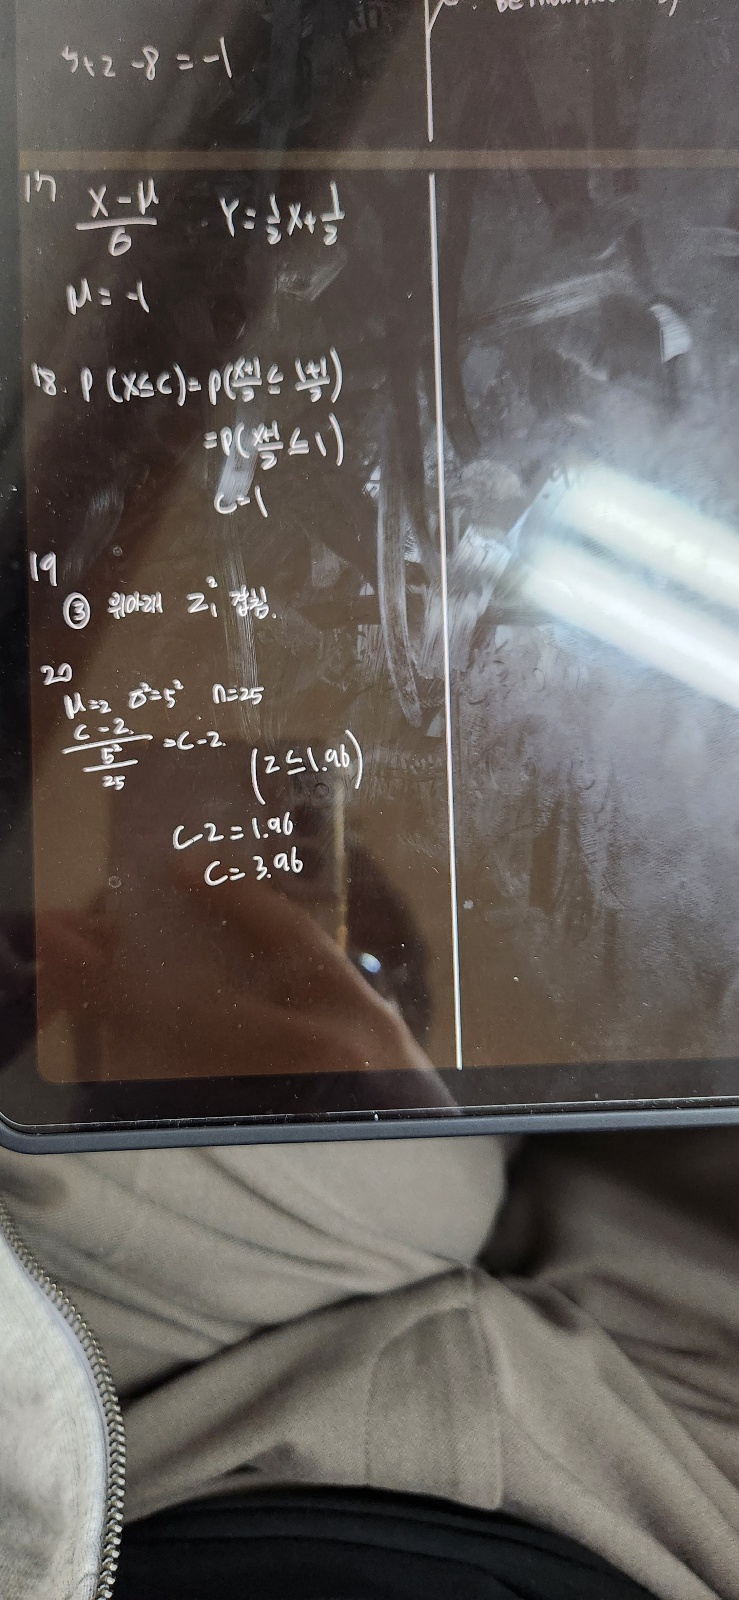 5+2-8=-1
17
X-μ
6
Y=½X+½
μ=-1
18. P(X≤C)=P(X+1/2≤1+1/2)
=P(X+1/2≤1)
C=1
19
③ 위아래 Z₁² 겹침.
20
μ=2 σ²=5² n=25
C-2
5²
25
=C-2.
(Z≤1.96)
C-2=1.96
C=3.96